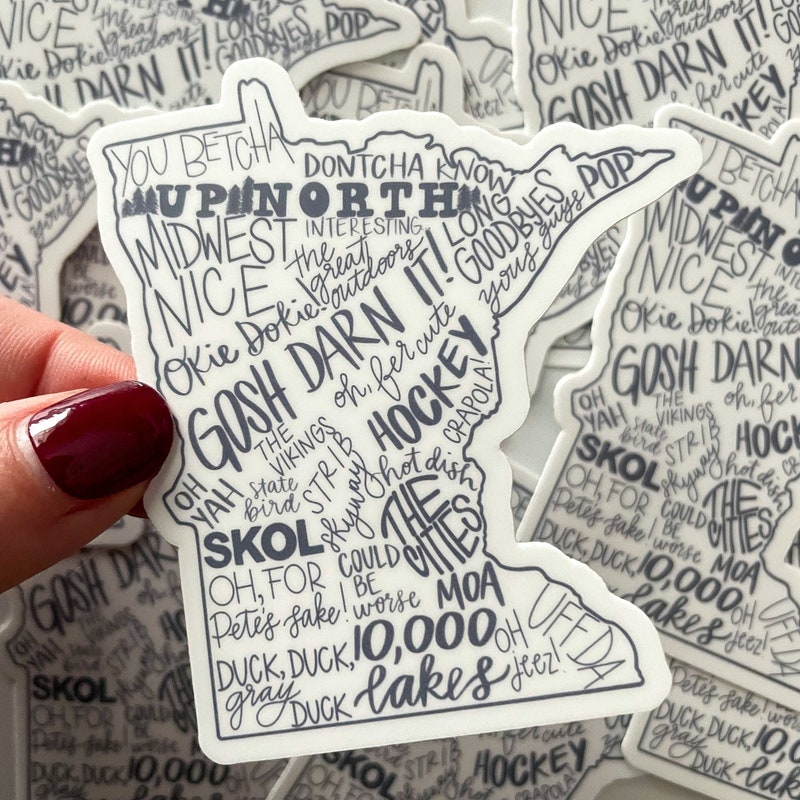 YOU BETCHA
DONTCHA KNOW
UP NORTH
MIDWEST
NICE
INTERESTING..
the
great
outdoors
LONG
GOODBYES
POP
yous guys
Okie Dokie!
GOSH DARN IT!
oh, fer cute
HOCKEY
CRAPOLA!
THE
VIKINGS
OH
YAH
state
bird
STRIB
skyway
hot dish
THE
CITIES
SKOL
OH, FOR
Pete's sake!
COULD
BE
worse
MOA
DUCK, DUCK,
gray
DUCK
10,000
lakes
OH
jeez!
UFFDA